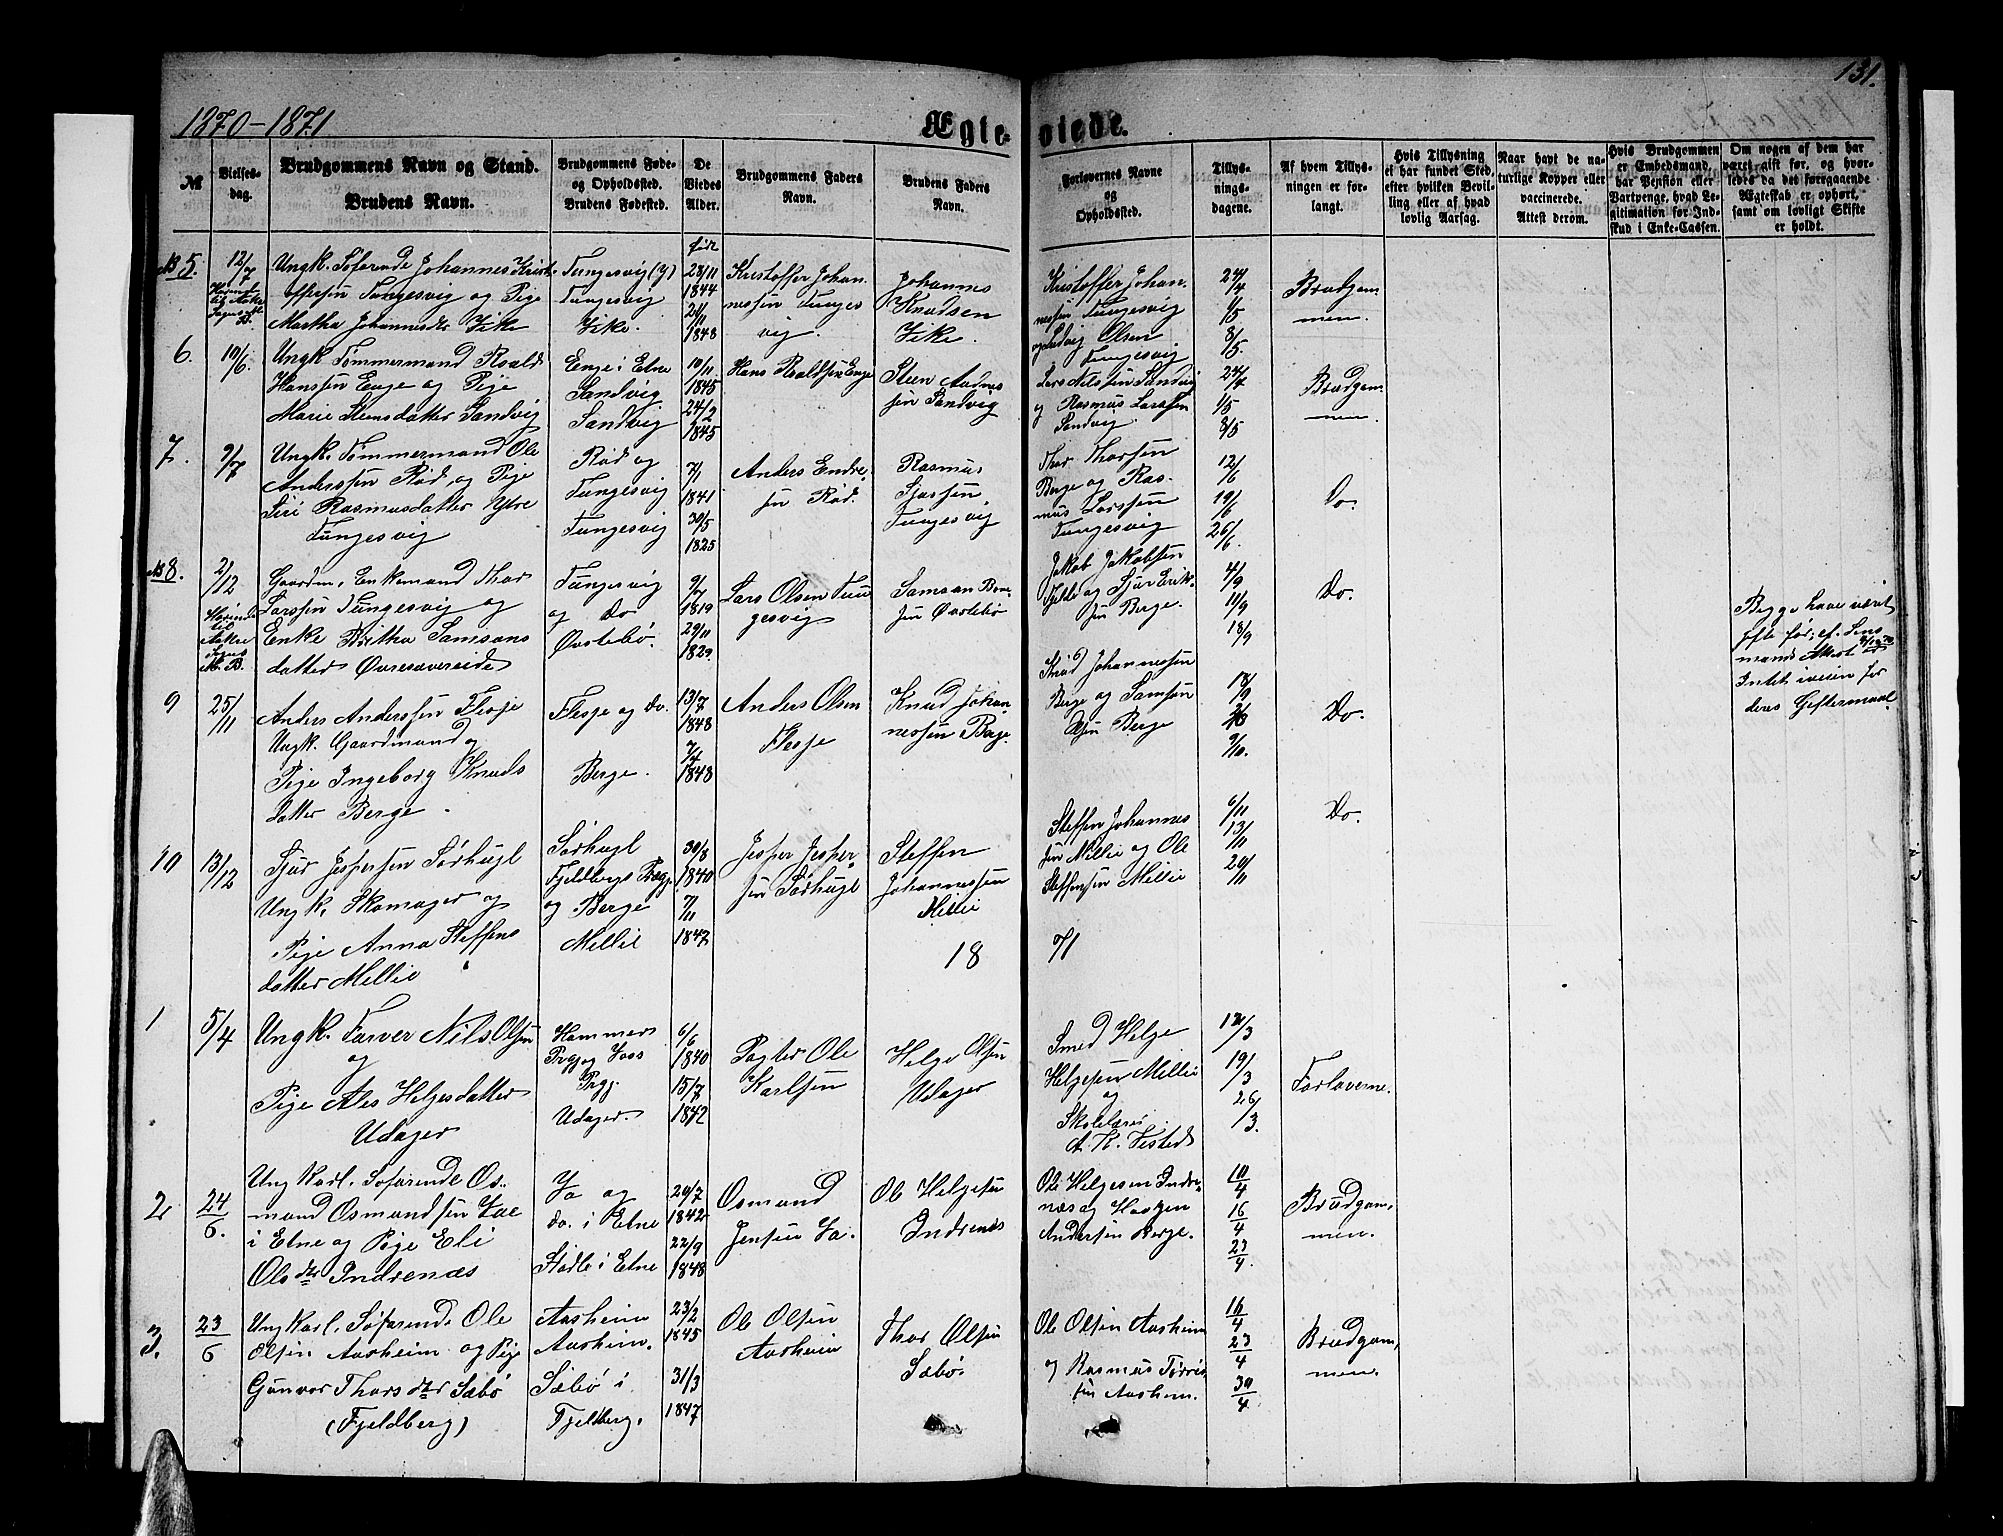 131.
1870-1871
Ægte-
viede.
№
Vielses-
dag.
Brudgommens Navn og Stand.
Brudens Navn.
Brudgommens Føde-
og Opholdssted.
Brudens Fødested.
De
Viedes
Alder.
Brudgommens Faders
Navn.
Brudens Faders
Navn.
Forlovernes Navne
og
Opholdssted.
Tillys-
nings-
dagene.
Af hvem Tillys-
ningen er for-
langt.
Hvis Tillysning
ei har fundet Sted,
efter hvilken Bevil-
ling eller af hvad
lovlig Aarsag.
Naar havt de na-
turlige Kopper eller
vaccinerede.
Attest derom.
Hvis Brudgommen
er Embedsmand,
har Pension eller
Vartpenge, hvad Le-
gitimation for Ind-
skud i Enke-Cassen.
Om nogen af dem har
været gift før, og hvor-
ledes da det foregaaende
Ægteskab er ophørt,
samt om lovligt Skifte
er holdt.
5.
12/7
Ungk. Søfarende Johannes Krist-
offersen Tungesvig og Pige
Martha Johannesdtr Vike
Tungesvig
Tungesvig
Vike.
født
23/11
1844
1848
Kristoffer Johan
nessen Tunges
vig.
Johannes
Knudsen
Vike.
Kristoffer Johan
nessen Tungesvig
og Ludvig Olsen
Tungesvig
24/4
1/5
8/5
Brudgom
men.
6.
10/6.
Ungk. Tømmermand Roald
Hanssen Enge og Pige
Marie Steensdatter Sandvig
Enge i Etne
Sandvig
Sandvig
10/11
1845
24/2
1845
Hans Roaldsen Enge
Steen Aadnes
sen Sandvig
Lars Nilssen Sandvig
og Rasmus Larssen
Sandvig.
24/4
1/5
8/5
Brudgom
men
7.
9/7
Ungk. Tømmermand Ole
Anderssen Rød, og Pige
Siri Rasmusdatter Ytre
Tungesvig
Rød og
Tungesvig
Tungesvig
7/1
1841
30/5
1825
Anders Endre
sen Rød.
Rasmus
Sjursen
Tungesvig
Thor Thorsen
Berge og Ras-
mus Larssen
Tungesvig
12/6
19/6
26/6.
Do.
8.
2/12
Gaardm. Enkemand Thor
Larssen Tungesvig og
Enke Britha Samsons
datter Øvresævereide
Tungesvig
og Do
Øvstebø.
9/7
1819
29/11
1829
Lars Olsen Tun
gesvig
Samson Bene
sen Øvstebø
Jakob Jakobsen
Fjelle og Sjur Erik-
sen Berge.
4/9
11/9
18/9
Do.
Begge have været
gifte før, ef. Lens
mands Attest
Intet iveien for
deres Giftermaal.
9
25/11
Anders Anderssen Flesje
Ungk. Gaardmand og
Pige Ingeborg Knuds
datter Berge.
Flesje og do.
Berge.
13/7
1848
7/4
1848
Anders Olsen
Flesje
Knud Johan
nessen Berge.
Knud Johannessen
Berge og Samson
Olsen Berge
18/9
9/10.
Do.
10
13/12
Sjur Jespersen Sørhugl
Ungk. Skomager og
Pige Anna Steffens
datter Millie
Sørhugl
Fjeldbergs Prgj.
og Berge
Millie
30/8
1840
7/11
1847
Jesper Jesper
sen Sørhugl
Steffen
Johannessen
Millie
Steffen Johannes
sen Millie og Ole
Steffensen Millie
6/11
13/11
20/11
Do.
18 71
1
5/4
Ungk. Farver Nils Olsen
og
Pige Ales Helgesdatter
Udager
Hammers
Prgj. og Voss
Prgj.
Udager.
6/6
1840
15/7
1842
Pagter Ole
Karlsen
Helge Olsen
Udager
Smed Helge
Helgesen Millie
og
Skolelærer
A. K. Vestad
12/3
19/3
26/3.
Forloverne.
2
24/6.
Ungkarl. Søfarende Os-
mund Osmundsen Vae
i Etne og Pige Eli
Olsdtr Indrenæs
Va og
do. i Etne
Stødle i Etne
20/7
1842
22/9
1848
Osmund
Jensen Va.
Ole Helgesen
Indrenæs
Ole Helgesen Indre-
næs og Haagen
Andersen Berge.
10/4
16/4
23/4.
Brudgom
men.
3.
23/6
Ungkarl. Søfarende Ole
Olsen Aasheim og Pige
Gunvor Thorsdtr Sæbø
(Fjeldberg)
Aasheim
Aasheim.
Sæbø i
Fjelberg.
23/2
1845
31/3
1847
Ole Olsen
Aasheim
Thor Olsen
Sæbø.
Ole Olsen Aasheim
og Rasmus Tørris
sen Aasheim.
16/4
23/4
30/4
Brudgom
men.